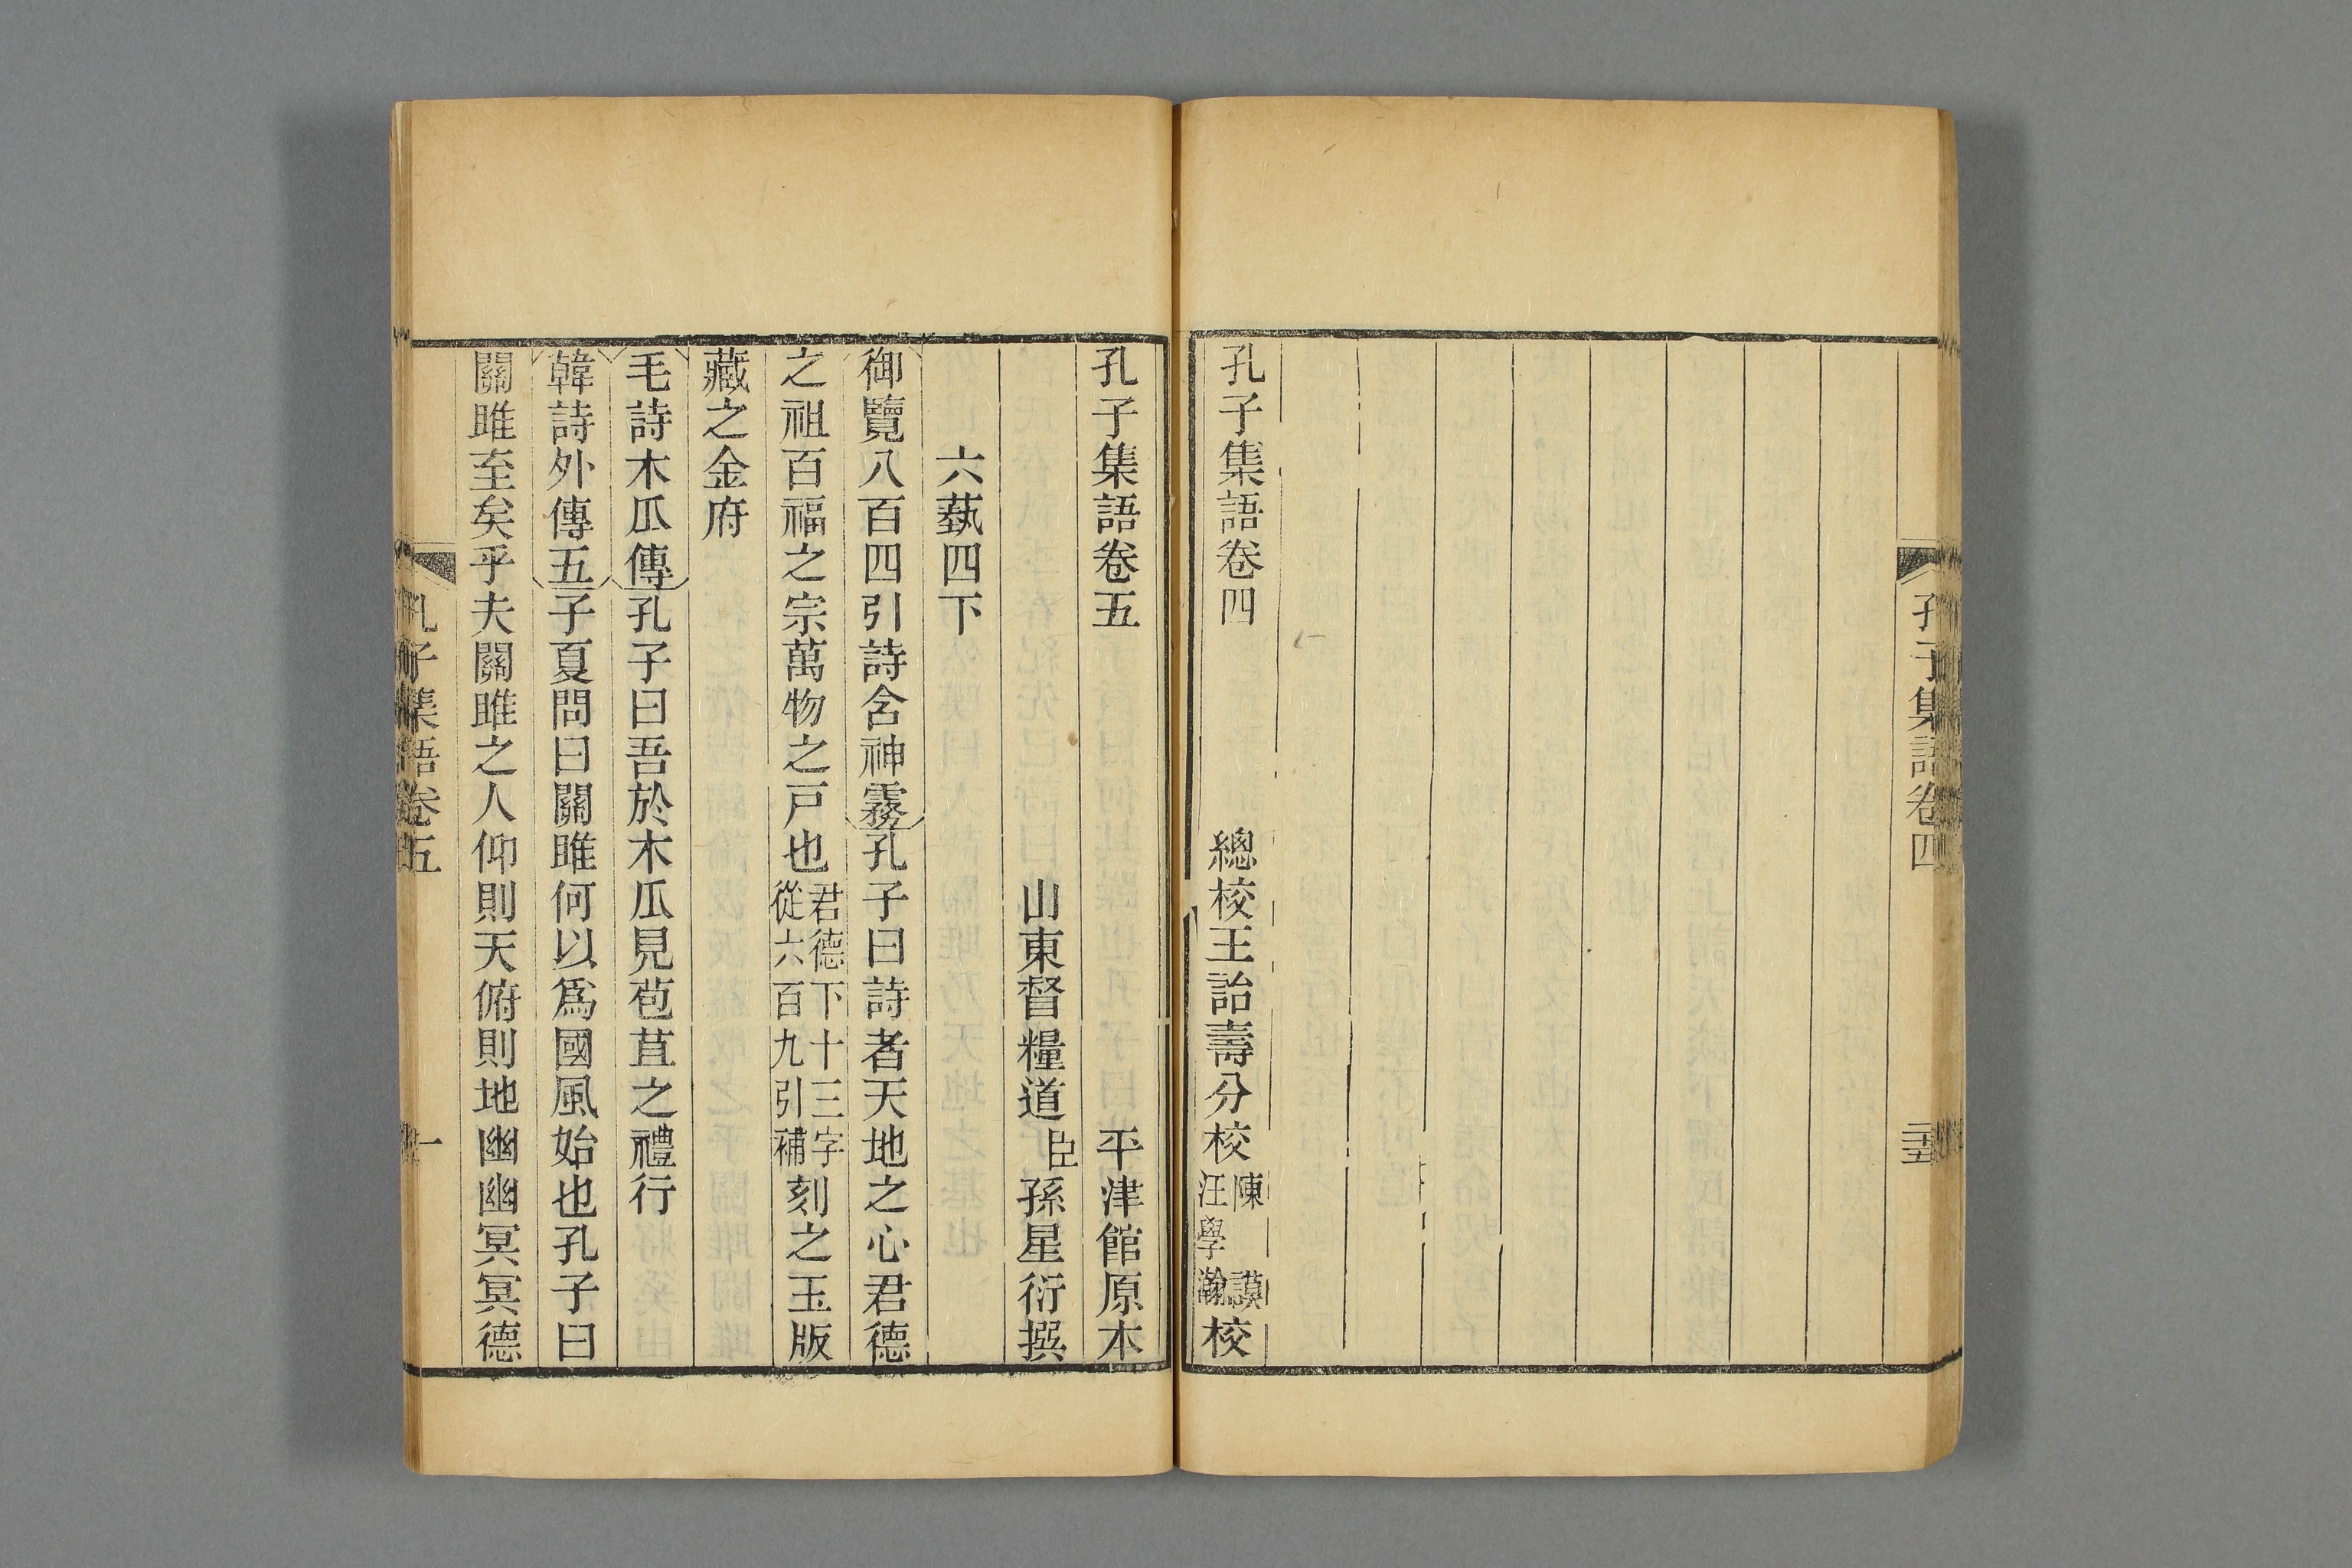 孔子集語卷四
二十五
孔子集語卷四
總校王詒壽分校陳謨汪學瀚校
孔子集語卷五
平津館原本
山東督糧道臣孫星衍撰
六蓺四下
御覽八百四引詩含神霧孔子曰詩者天地之心君德
之祖百福之宗萬物之戸也君德下十三字從六百九引補刻之玉版
藏之金府
毛詩木瓜傳孔子曰吾於木瓜見苞苴之禮行
韓詩外傳五子夏問曰關雎何以爲國風始也孔子曰
關雎至矣乎夫關雎之人仰則天俯則地幽幽冥冥德
孔子集語卷五
一